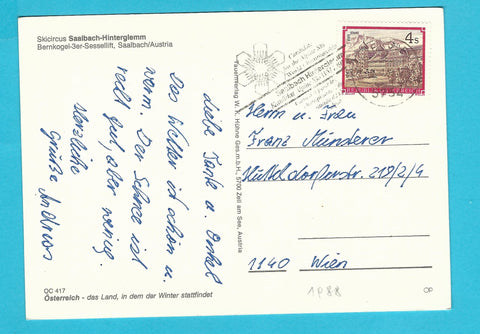 Skicircus Saalbach-Hinterglemm
Bernkogel-3er-Sessellift, Saalbach/Austria
Liebe Tante u. Onkel
Das Wetter ist schön u.
warm. Der Schnee ist
recht gut, aber wenig.
Herzliche
Grüße Andreas
QC 417
Österreich - das Land, in dem der Winter stattfindet
Tauernverlag W. K. Jühne Ges.m.b.H., 5700 Zell am See, Austria
Saalbach-Hinterglemm
4 S
REPUBLIK ÖSTERREICH
Herrn u. Frau
Franz Münderer
Hütteldorferstr. 219/2/9
1140 Wien
1988
OP